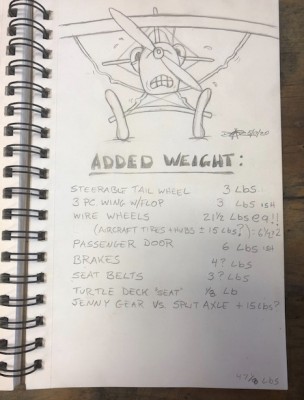 ADDED WEIGHT:
STEERABLE TAIL WHEEL 3 LbS
3 PC WING W/FLOP 3 LbS ISH
WIRE WHEELS 21½ LbS eq!!
(AIRCRAFT TIRES + HUBS ± 15 LbS?)
PASSENGER DOOR 6 LbS ISH
BRAKES 4? LbS
SEAT BELTS 3? LbS
TURTLE DECK 'SEAT' ⅓ Lb
JENNY GEAR VS. SPLIT AXLE + 15 LbS?
LbS